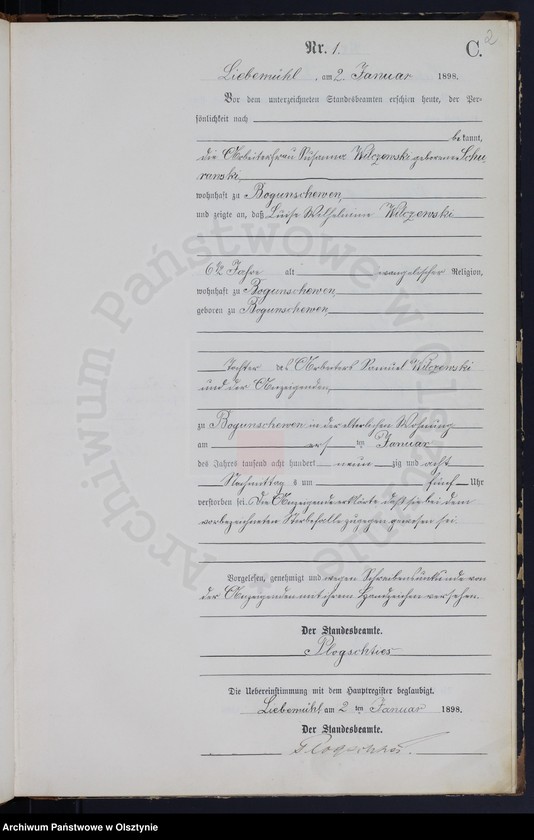 2
Nr. 1.
C.
Liebemühl, am 2. Januar 1898.
Vor dem unterzeichneten Standesbeamten erschien heute, der Per-
sönlichkeit nach
bekannt,
die Arbeiterfrau Susanna Wilczewski geborene Schu
ranski,
wohnhaft zu Bogunschewen,
und zeigte an, daß Luise Wilhelmine Wilczewski
6½ Jahre alt evangelischer Religion,
wohnhaft zu Bogunschewen,
geboren zu Bogunschewen,
Tochter des Arbeiters Samuel Wilczewski
und der Anzeigenden,
zu Bogunschewen in der elterlichen Wohnung
am ersten Januar
des Jahres tausend acht hundert neunzig und acht
Nachmittags um fünf Uhr
verstorben sei. Die Anzeigende erklärte daß sie bei dem
vorbezeichneten Sterbefalle zugegen gewesen sei.
Vorgelesen, genehmigt und wegen Schreibensunkunde von
der Anzeigenden mit ihrem Handzeichen versehen.
Der Standesbeamte.
Plogschties
Die Uebereinstimmung mit dem Hauptregister beglaubigt.
Liebemühl am 2ten Januar 1898.
Der Standesbeamte.
Plogschties.
Archiwum Państwowe w Olsztynie
Archiwum Państwowe w Olsztynie